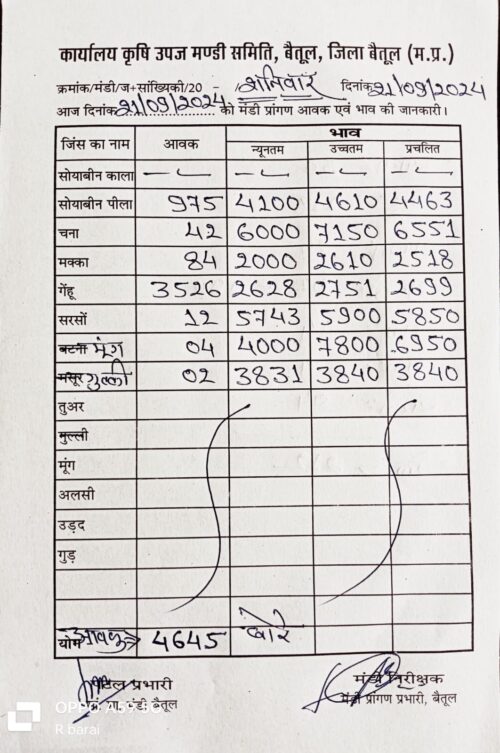 कार्यालय कृषि उपज मण्डी समिति, बैतूल, जिला बैतूल (म.प्र.)
क्रमांक/मंडी/ज+सांख्यिकी/20 - शनिवार दिनांक 21/09/2024
आज दिनांक 21/09/2024 को मंडी प्रांगण आवक एवं भाव की जानकारी।
जिंस का नाम आवक भाव
न्यूनतम उच्चतम प्रचलित
सोयाबीन काला — — — —
सोयाबीन पीला 975 4100 4610 4463
चना 42 6000 7150 6551
मक्का 84 2000 2610 2518
गेंहू 3526 2628 2751 2699
सरसों 12 5743 5900 5850
बटना मूंग 04 4000 7800 6950
मसूर गुल्ली 02 3831 3840 3840
तुअर
मुल्ली
मूंग
अलसी
उड़द
गुड़
योग आवक 4645 बोरे
प्रभारी मंडी निरीक्षक
मंडी बैतूल मंडी प्रांगण प्रभारी, बैतूल
OPPO A59 5G
R barai